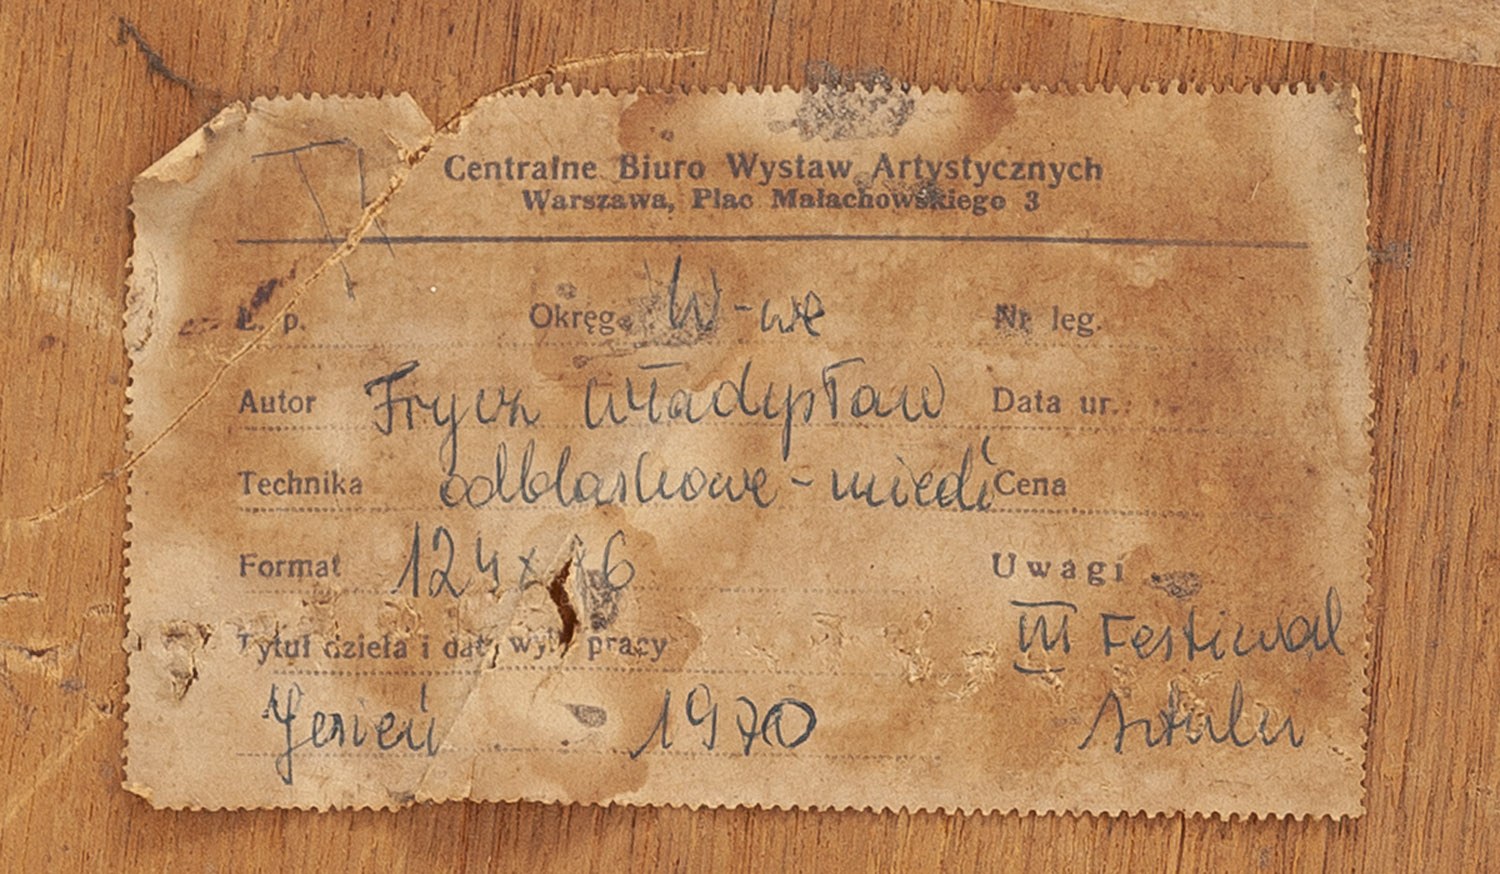 Centralne Biuro Wystaw Artystycznych
Warszawa, Plac Małachowskiego 3
Ł. p. Okręg. W-we Nr leg.
Autor Frycz Władysław Data ur.:
Technika odblaskowe - miedź Cena
Format 124x 6 Uwagi
III Festiwal
Tytuł dzieła i dat wyk pracy
Jesień - 1970 Sztuki